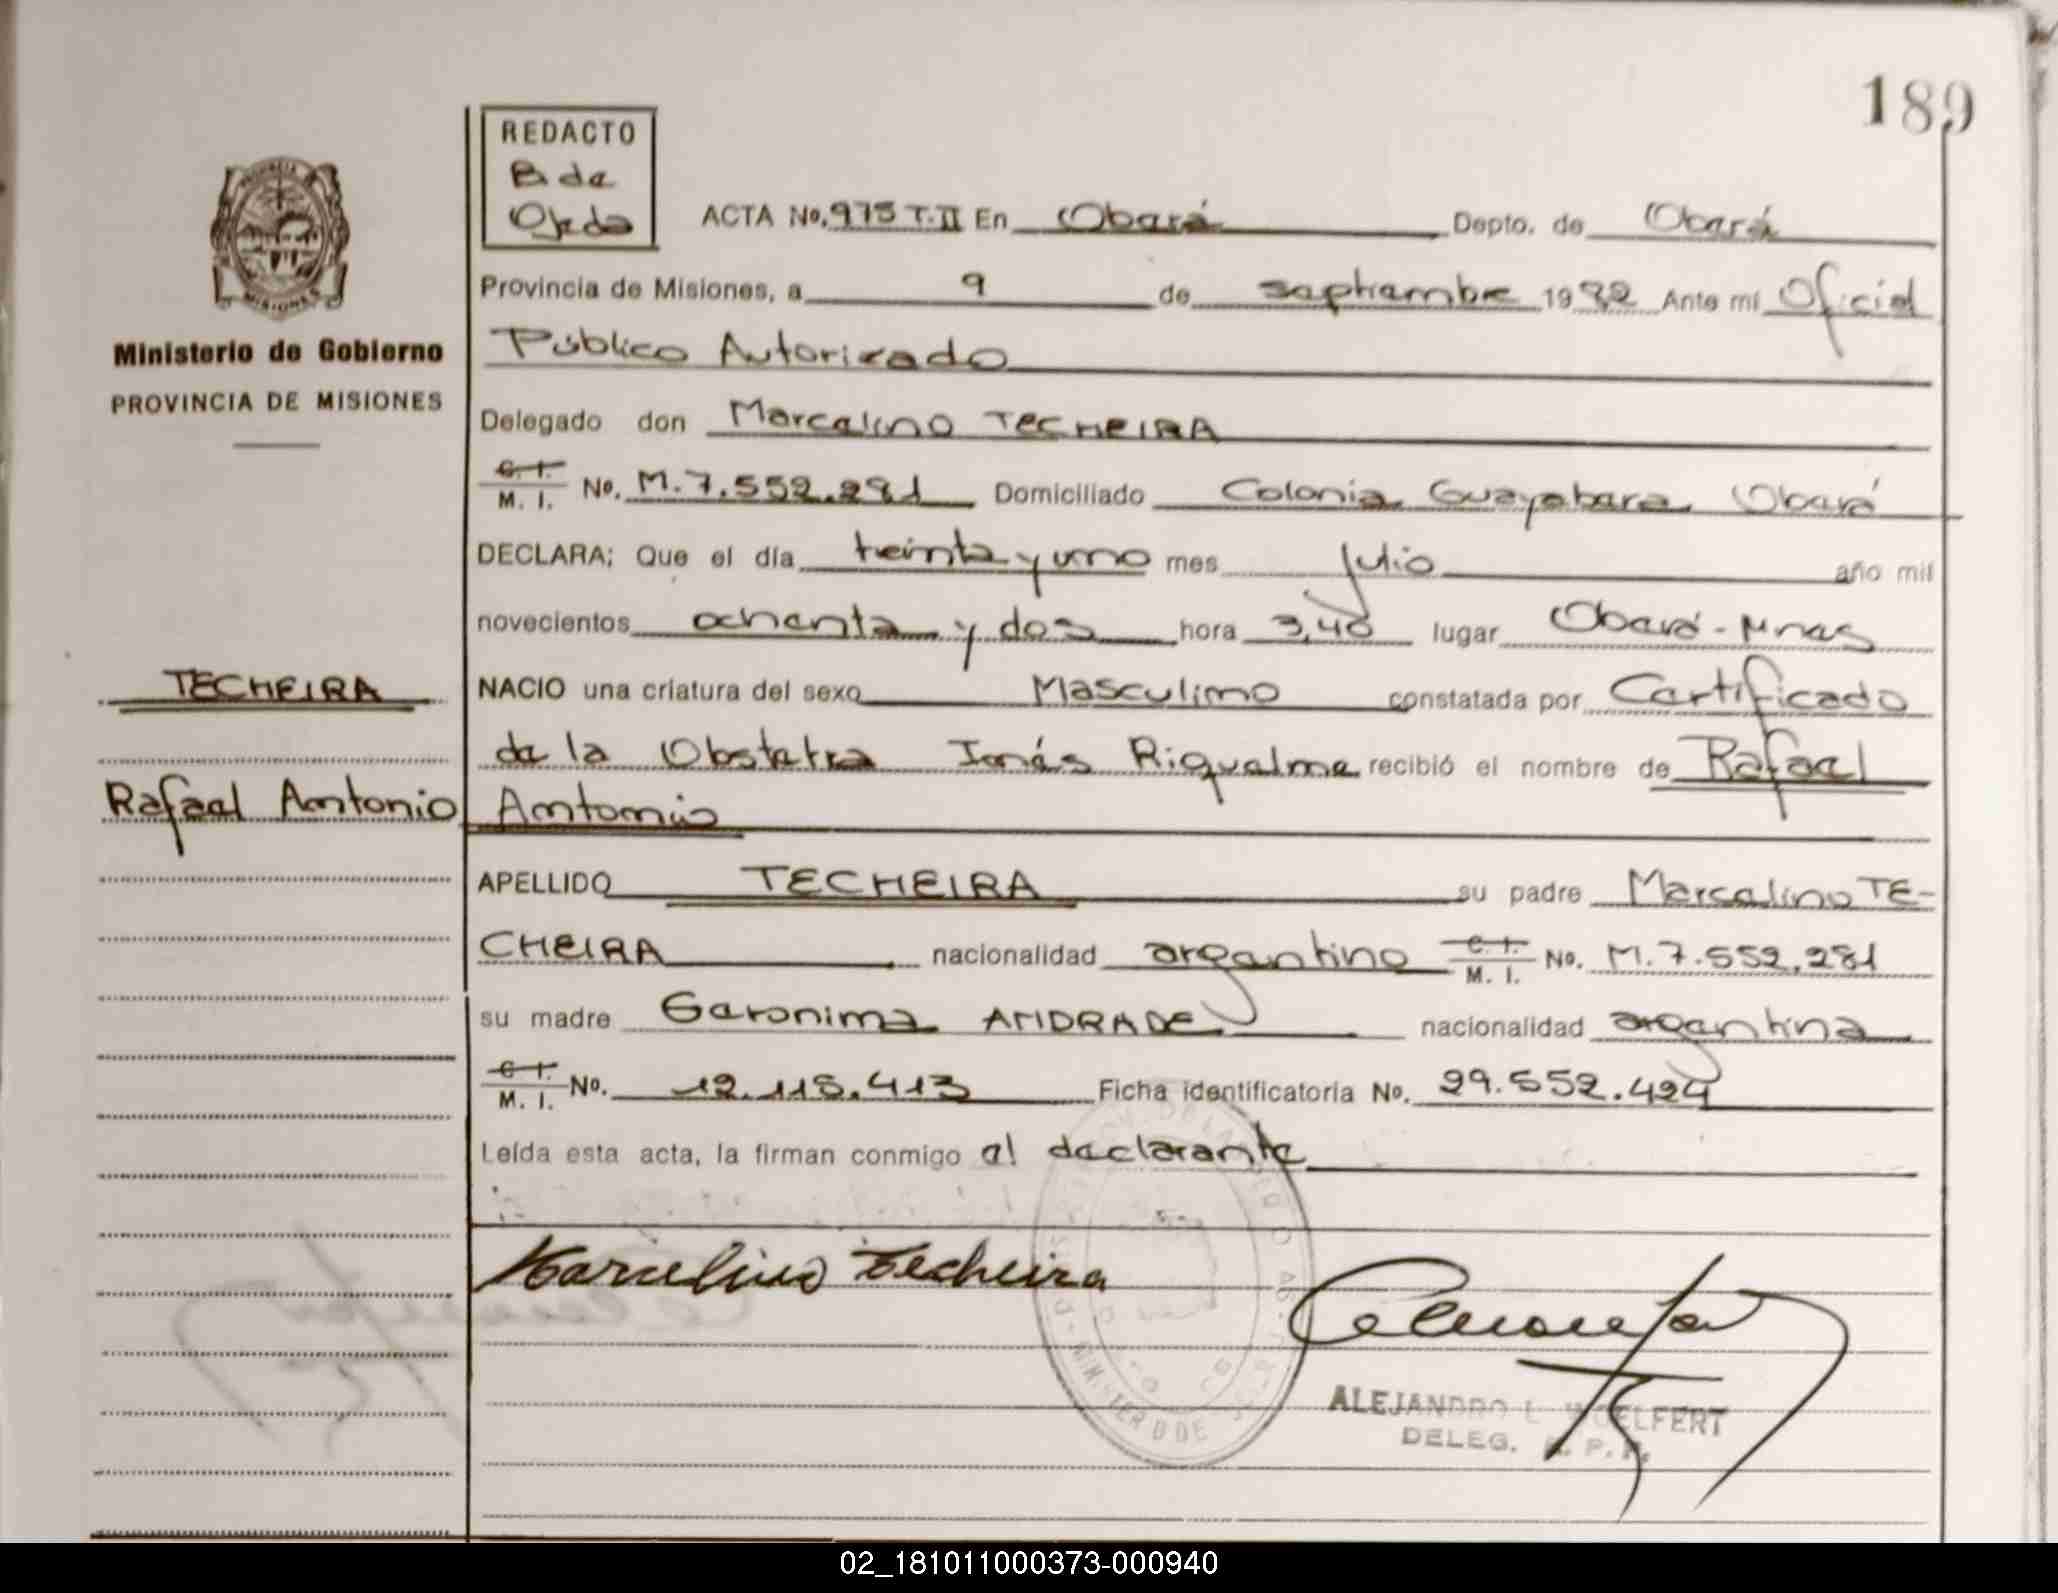 189
REDACTO
B de
Ojeda
ACTA No. 975 T.II En Oberá Depto. de Oberá
Provincia de Misiones, a 9 de septiembre 1982 Ante mí Oficial
Público Autorizado
Ministerio de Gobierno
PROVINCIA DE MISIONES
Delegado don Marcelino TECHEIRA
C. I.
M. I. No. M.7.552.281 Domiciliado Colonia Guayabera Oberá
DECLARA; Que el día treinta y uno mes julio año mil
novecientos ochenta y dos hora 3,40 lugar Oberá-Mnes
TECHEIRA
NACIO una criatura del sexo Masculino constatada por Certificado
de la Obstetra Inés Riquelme recibió el nombre de Rafael
Rafael Antonio
Antonio
APELLIDO TECHEIRA su padre Marcelino TE-
CHEIRA nacionalidad argentino C. I. M. I. No. M.7.552.281
su madre Geronima ANDRADE nacionalidad argentina
C. I.
M. I. No. 12.115.413 Ficha identificatoria No. 29.552.424
Leída esta acta, la firman conmigo el declarante
Marcelino Techeira
ALEJANDRO L.
DELEG.
MINISTERIO DE
02_181011000373-000940